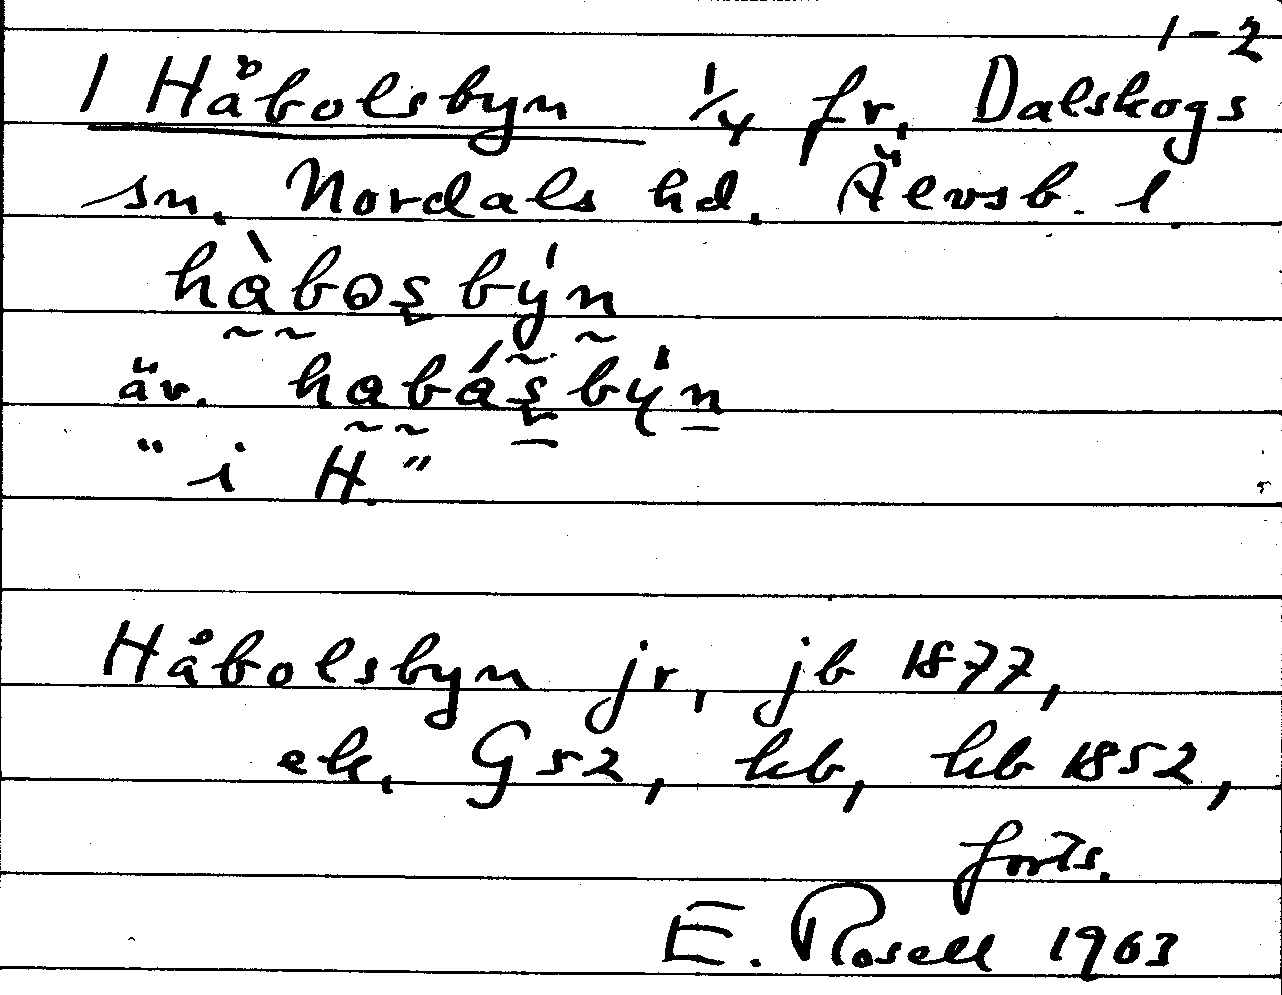 1-2
1 Håbolsbyn 1/4 fr. Dalskogs
sn. Nordals hd. Älvsb. l.
hàbos̬býn
äv. habás̬býn
" i H."
Håbolsbyn jr, jb 1877,
ek, G52, kb, kb 1852,
forts.
E. Rosell 1963